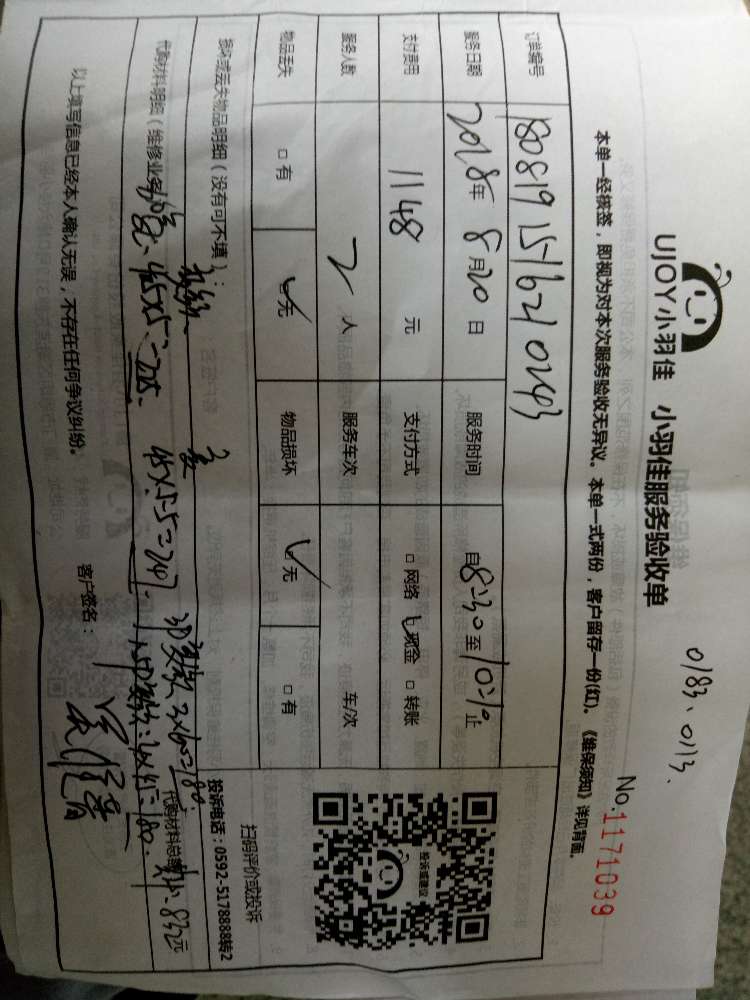 0183、0113.
UJOY小羽佳 小羽佳服务验收单
No.1171039
本单一经核签，即视为对本次服务验收无异议。本单一式两份，客户留存一份(红)。《维保须知》详见背面。
订单编号 180819151621 0293
服务日期 2018年 8月20日 服务时间 自8:30至10:10止
支付费用 1148 元 支付方式 □网络 ☑现金 □转账
服务人数 2 人 服务车次 车/次
物品丢失 □有 ☑无 物品损坏 ☑无 □有
投诉或建议
扫码评价或投诉
投诉电话：0592-5178888转2
损坏或丢失物品明细（没有可不填）：
代购材料明细（维修业务 代购材料总额 832元
45×5=225. 45×5.5=247. 2×90=180.
以上填写信息已经本人确认无误，不存在任何争议纠纷。 客户签名：